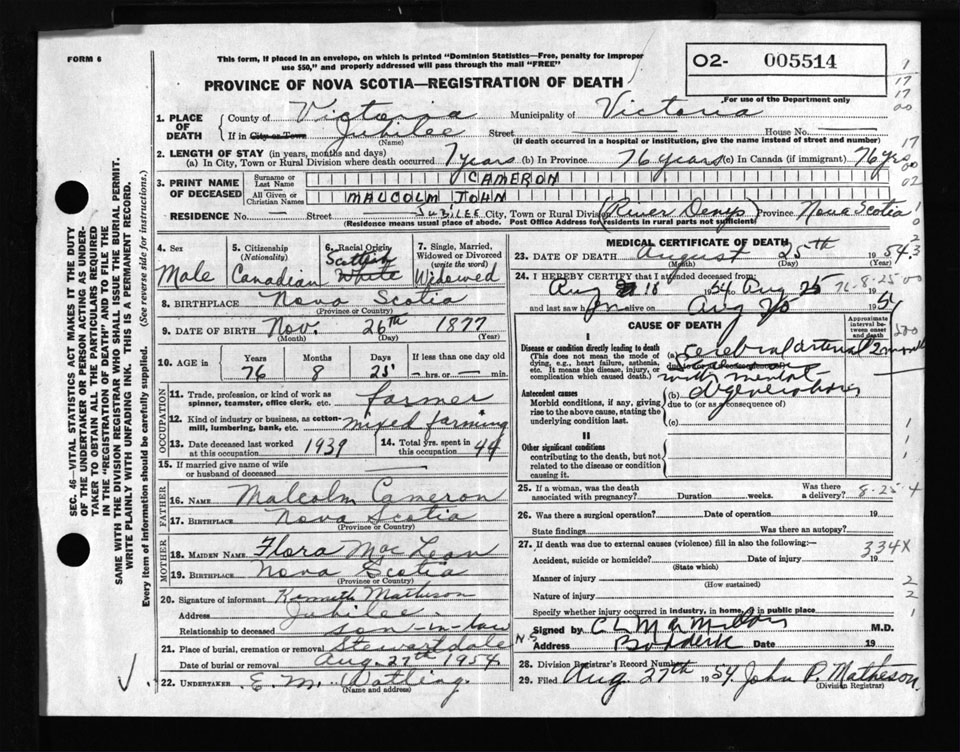 FORM 6
This form, if placed in an envelope, on which is printed "Dominion Statistics—Free, penalty for improper
use $50," and properly addressed will pass through the mail "FREE"
PROVINCE OF NOVA SCOTIA—REGISTRATION OF DEATH
O2- 005514
For use of the Department only
1. PLACE OF DEATH
County of Victoria Municipality of Victoria
If in City or Town Jubilee Street House No.
(Name) (If death occurred in a hospital or institution, give the name instead of street and number)
2. LENGTH OF STAY (in years, months and days)
(a) In City, Town or Rural Division where death occurred 7 years (b) In Province 76 years (c) In Canada (if immigrant) 76 yrs
3. PRINT NAME OF DECEASED
Surname or Last Name CAMERON
All Given or Christian Names MALCOLM JOHN
RESIDENCE No. — Street — JUBILEE City, Town or Rural Division (River Denys) Province Nova Scotia
(Residence means usual place of abode. Post Office Address for Residents in rural parts not sufficient)
4. Sex Male
5. Citizenship (Nationality) Canadian
6. Racial Origin Scottish White
7. Single, Married, Widowed or Divorced (write the word) Widowed
8. BIRTHPLACE Nova Scotia
(Province or Country)
9. DATE OF BIRTH Nov. 26th 1877
(Month) (Day) (Year)
10. AGE in Years Months Days If less than one day old
76 8 25 — hrs. or — min.
OCCUPATION
11. Trade, profession, or kind of work as spinner, teamster, office clerk, etc. farmer
12. Kind of industry or business, as cotton-mill, lumbering, bank, etc. mixed farming
13. Date deceased last worked at this occupation 1939
14. Total yrs. spent in this occupation 44
15. If married give name of wife or husband of deceased
FATHER
16. NAME Malcolm Cameron
17. BIRTHPLACE Nova Scotia
(Province or Country)
MOTHER
18. MAIDEN NAME Flora MacLean
19. BIRTHPLACE Nova Scotia
(Province or Country)
20. Signature of informant Kenneth Matheson
Address Jubilee
Relationship to deceased son-in-law
21. Place of burial, cremation or removal Stewartdale
Date of burial or removal Aug. 27th 1954
22. UNDERTAKER E. M. Watling
(Name and address)
MEDICAL CERTIFICATE OF DEATH
23. DATE OF DEATH August 25th 1954
(Month) (Day) (Year)
24. I HEREBY CERTIFY that I attended deceased from:
Aug 18 1954 Aug 25 76-8-25
and last saw h im alive on Aug 1954
CAUSE OF DEATH
Approximate interval between onset and death
I
Disease or condition directly leading to death
(This does not mean the mode of dying, e.g., heart failure, asthenia, etc. It means the disease, injury, or complication which caused death.)
(a) Cerebral arterial 2 months
due to (or as a consequence of)
with mental
(b) degeneration
due to (or as a consequence of)
(c)
Antecedent causes
Morbid conditions, if any, giving rise to the above cause, stating the underlying condition last.
II
Other significant conditions
contributing to the death, but not related to the disease or condition causing it.
25. If a woman, was the death associated with pregnancy? Duration weeks. Was there a delivery? 8-25-4
26. Was there a surgical operation? Date of operation 19
State findings Was there an autopsy?
27. If death was due to external causes (violence) fill in also the following:— 334X
Accident, suicide or homicide? Date of injury 19
(State which)
Manner of injury
(How sustained)
Nature of injury
Specify whether injury occurred in industry, in home, in public place
Signed by C L MacMillan M.D.
Address Baddeck N.S. Date 19
28. Division Registrar's Record Number
29. Filed Aug. 27th 1954 John P. Matheson
(Division Registrar)
SEC. 46—VITAL STATISTICS ACT MAKES IT THE DUTY
OF THE UNDERTAKER OR PERSON ACTING AS UNDER-
TAKER TO OBTAIN ALL THE PARTICULARS REQUIRED
IN THE "REGISTRATION OF DEATH" AND TO FILE THE
SAME WITH THE DIVISION REGISTRAR WHO SHALL ISSUE THE BURIAL PERMIT.
WRITE PLAINLY WITH UNFADING INK. THIS IS A PERMANENT RECORD.
Every item of information should be carefully supplied. (See reverse side for instructions.)